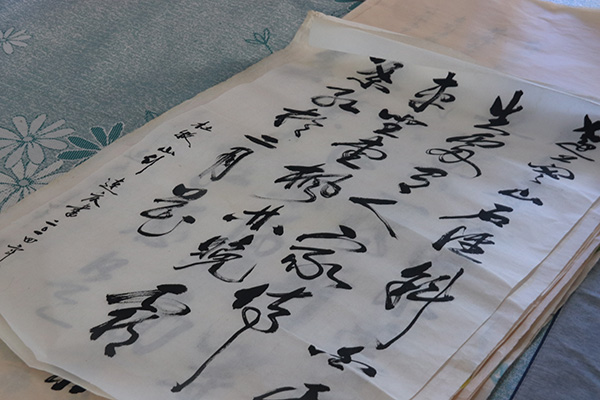 遠上寒山石徑斜白雲
生處有人家停
車坐愛楓林晚霜
葉紅於二月花
杜牧 山行